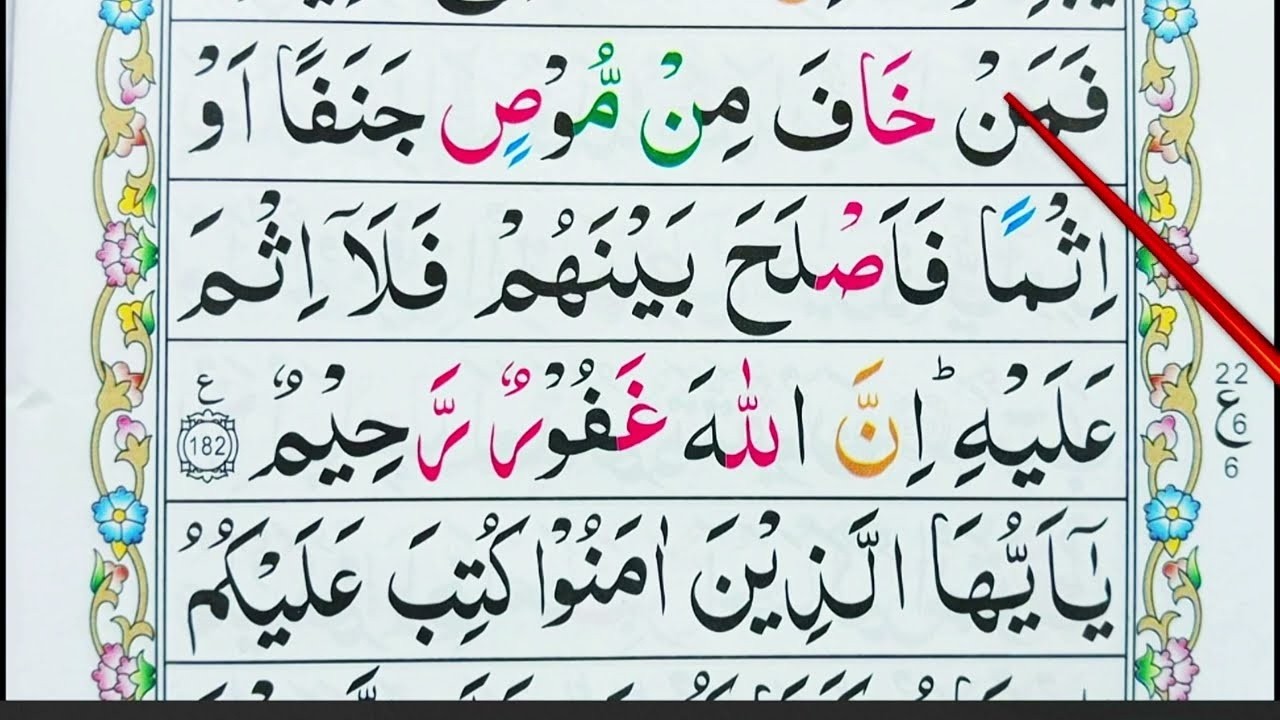 فَمَنْ خَافَ مِنْ مُّوْصٍ جَنَفًا اَوْ
اِثْمًا فَاَصْلَحَ بَيْنَهُمْ فَلَآ اِثْمَ
عَلَيْهِ ؕ اِنَّ اللّٰهَ غَفُوْرٌ رَّحِيْمٌ ع 182
22
ع 6
6
يٰٓاَيُّهَا الَّذِيْنَ اٰمَنُوْا كُتِبَ عَلَيْكُمُ